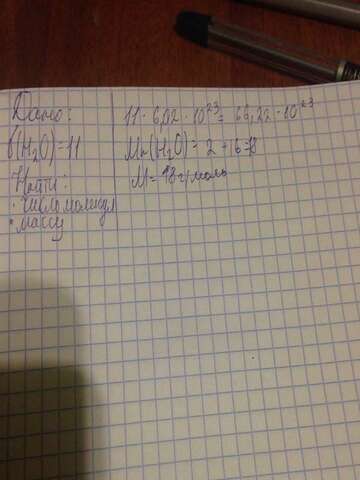 Дано:
(H₂O)=11
Найти:
· число молекул
· массу
11 · 6,02 · 10²³ = 66,22 · 10²³
Mr(H₂O) = 2 + 6 = 8
M = 18 г/моль